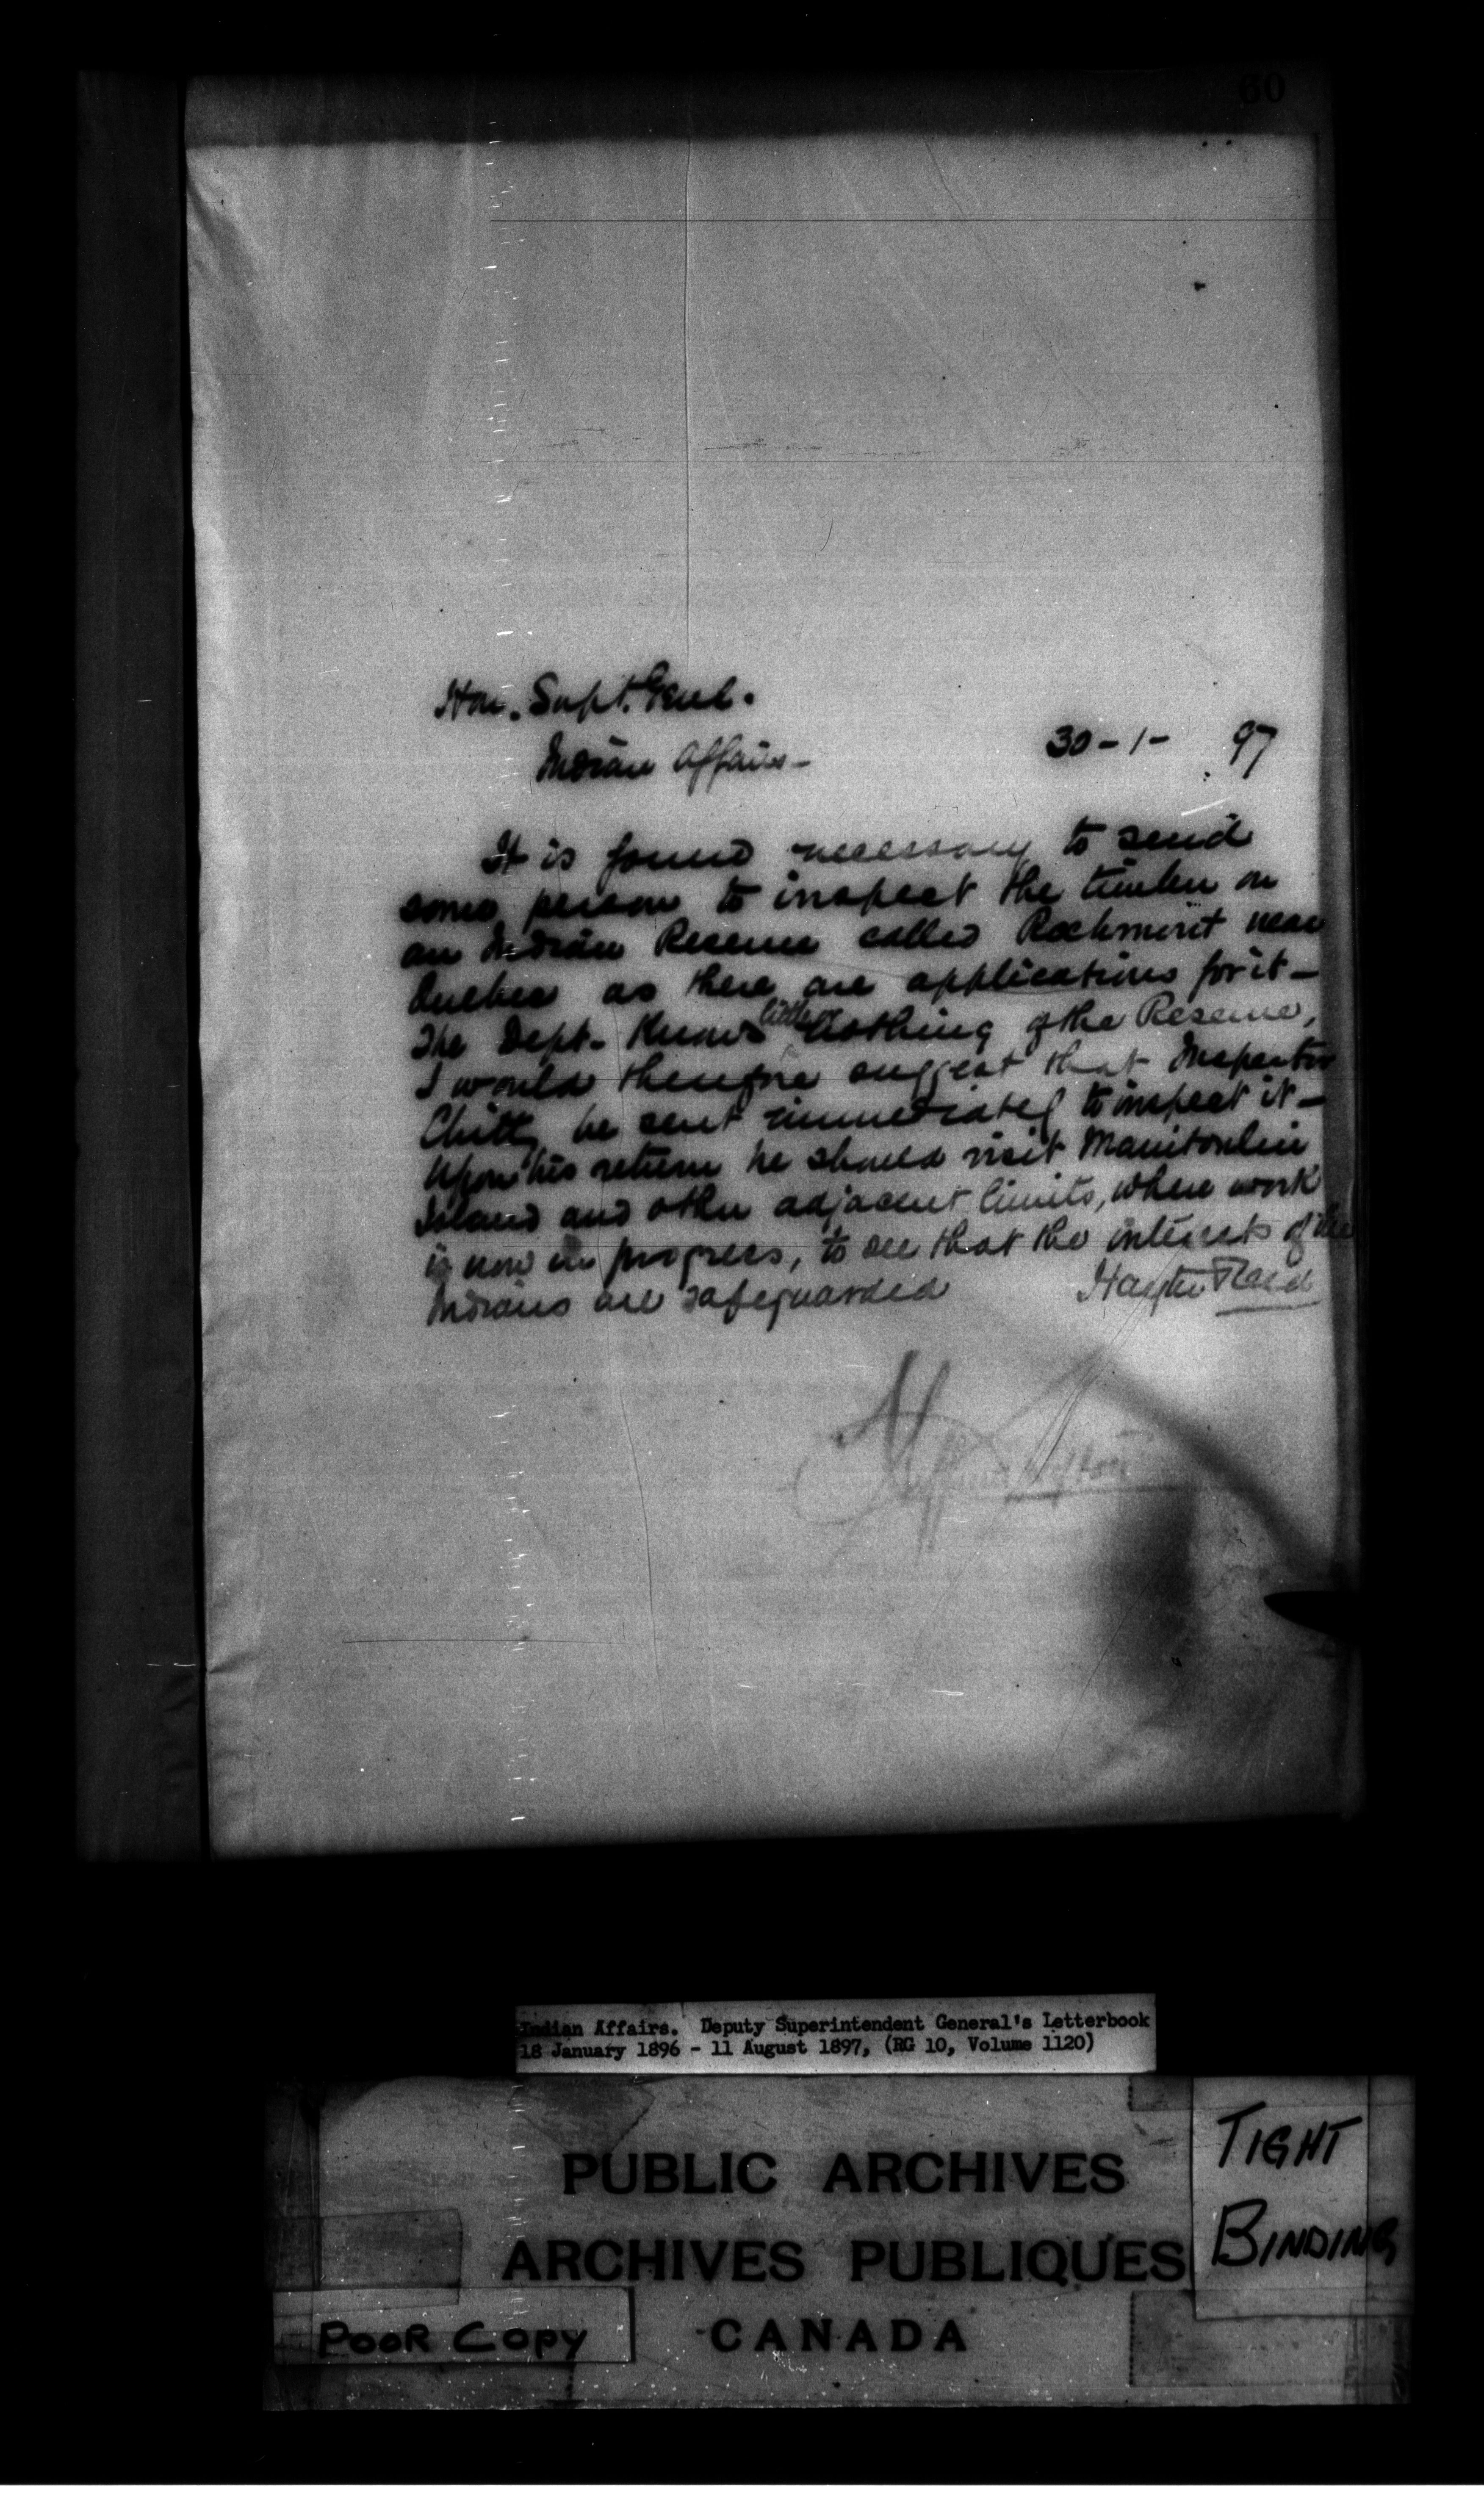 60
Hon. Supt. Genl.
Indian Affairs-
30-1- 97
It is found necessary to send
some person to inspect the timber on
an Indian Reserve called Rockmont near
Quebec as there are applications for it-
The Dept. knows little or nothing of the Reserve,
I would therefore suggest that Inspector
Chitty be sent immediately to inspect it-
Upon his return he should visit Manitoulin
Island and other adjacent limits, where work
is now in progress, to see that the interests of the
Indians are safeguarded
Hayter Reed
Clifford Sifton
Indian Affairs. Deputy Superintendent General's Letterbook
18 January 1896 - 11 August 1897, (RG 10, Volume 1120)
PUBLIC ARCHIVES
ARCHIVES PUBLIQUES
CANADA
TIGHT
BINDING
POOR COPY